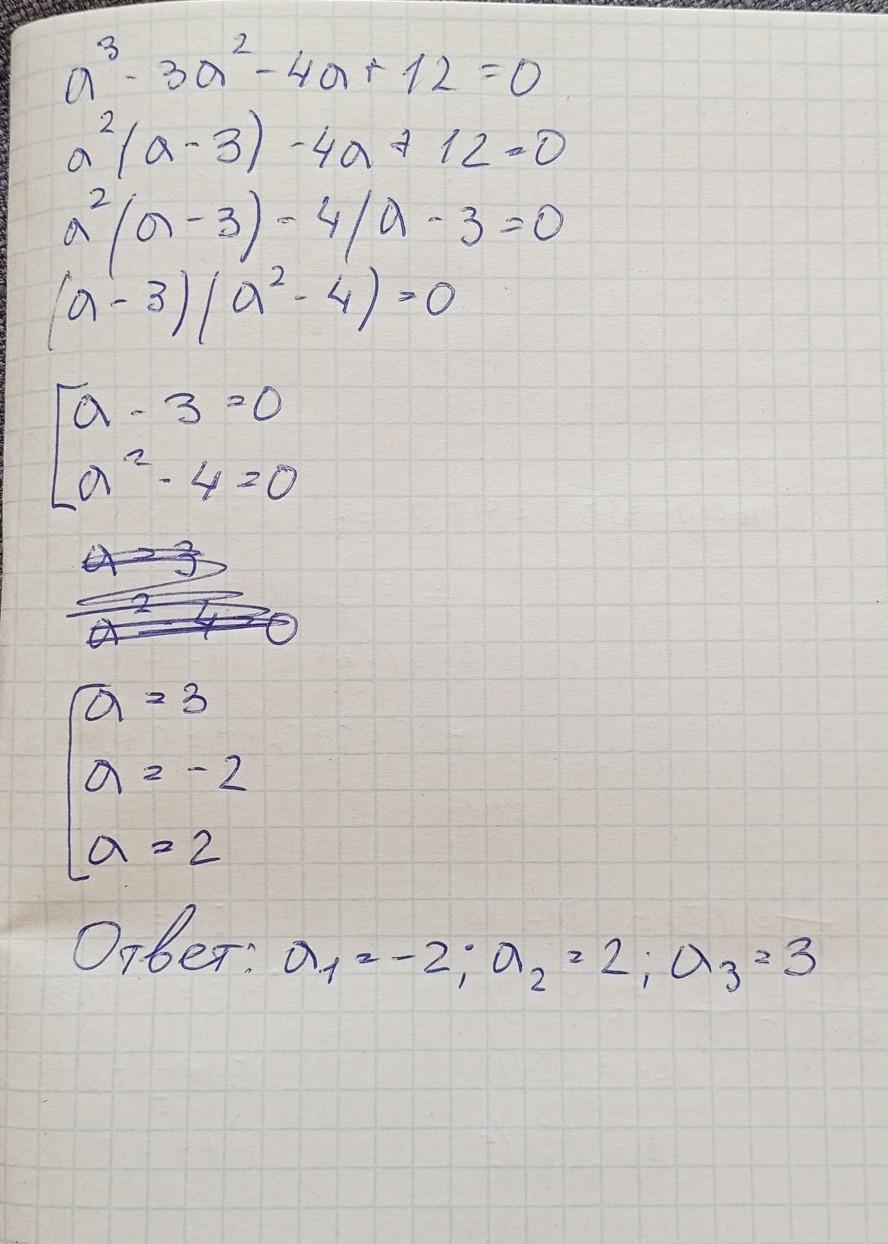 a³ - 3a² - 4a + 12 = 0
a²(a - 3) - 4a + 12 = 0
a²(a - 3) - 4(a - 3 = 0
(a - 3)(a² - 4) = 0
[a - 3 = 0
a² - 4 = 0
a = 3
a² - 4 = 0
[a = 3
a = -2
a = 2
Ответ: a₁ = -2; a₂ = 2; a₃ = 3